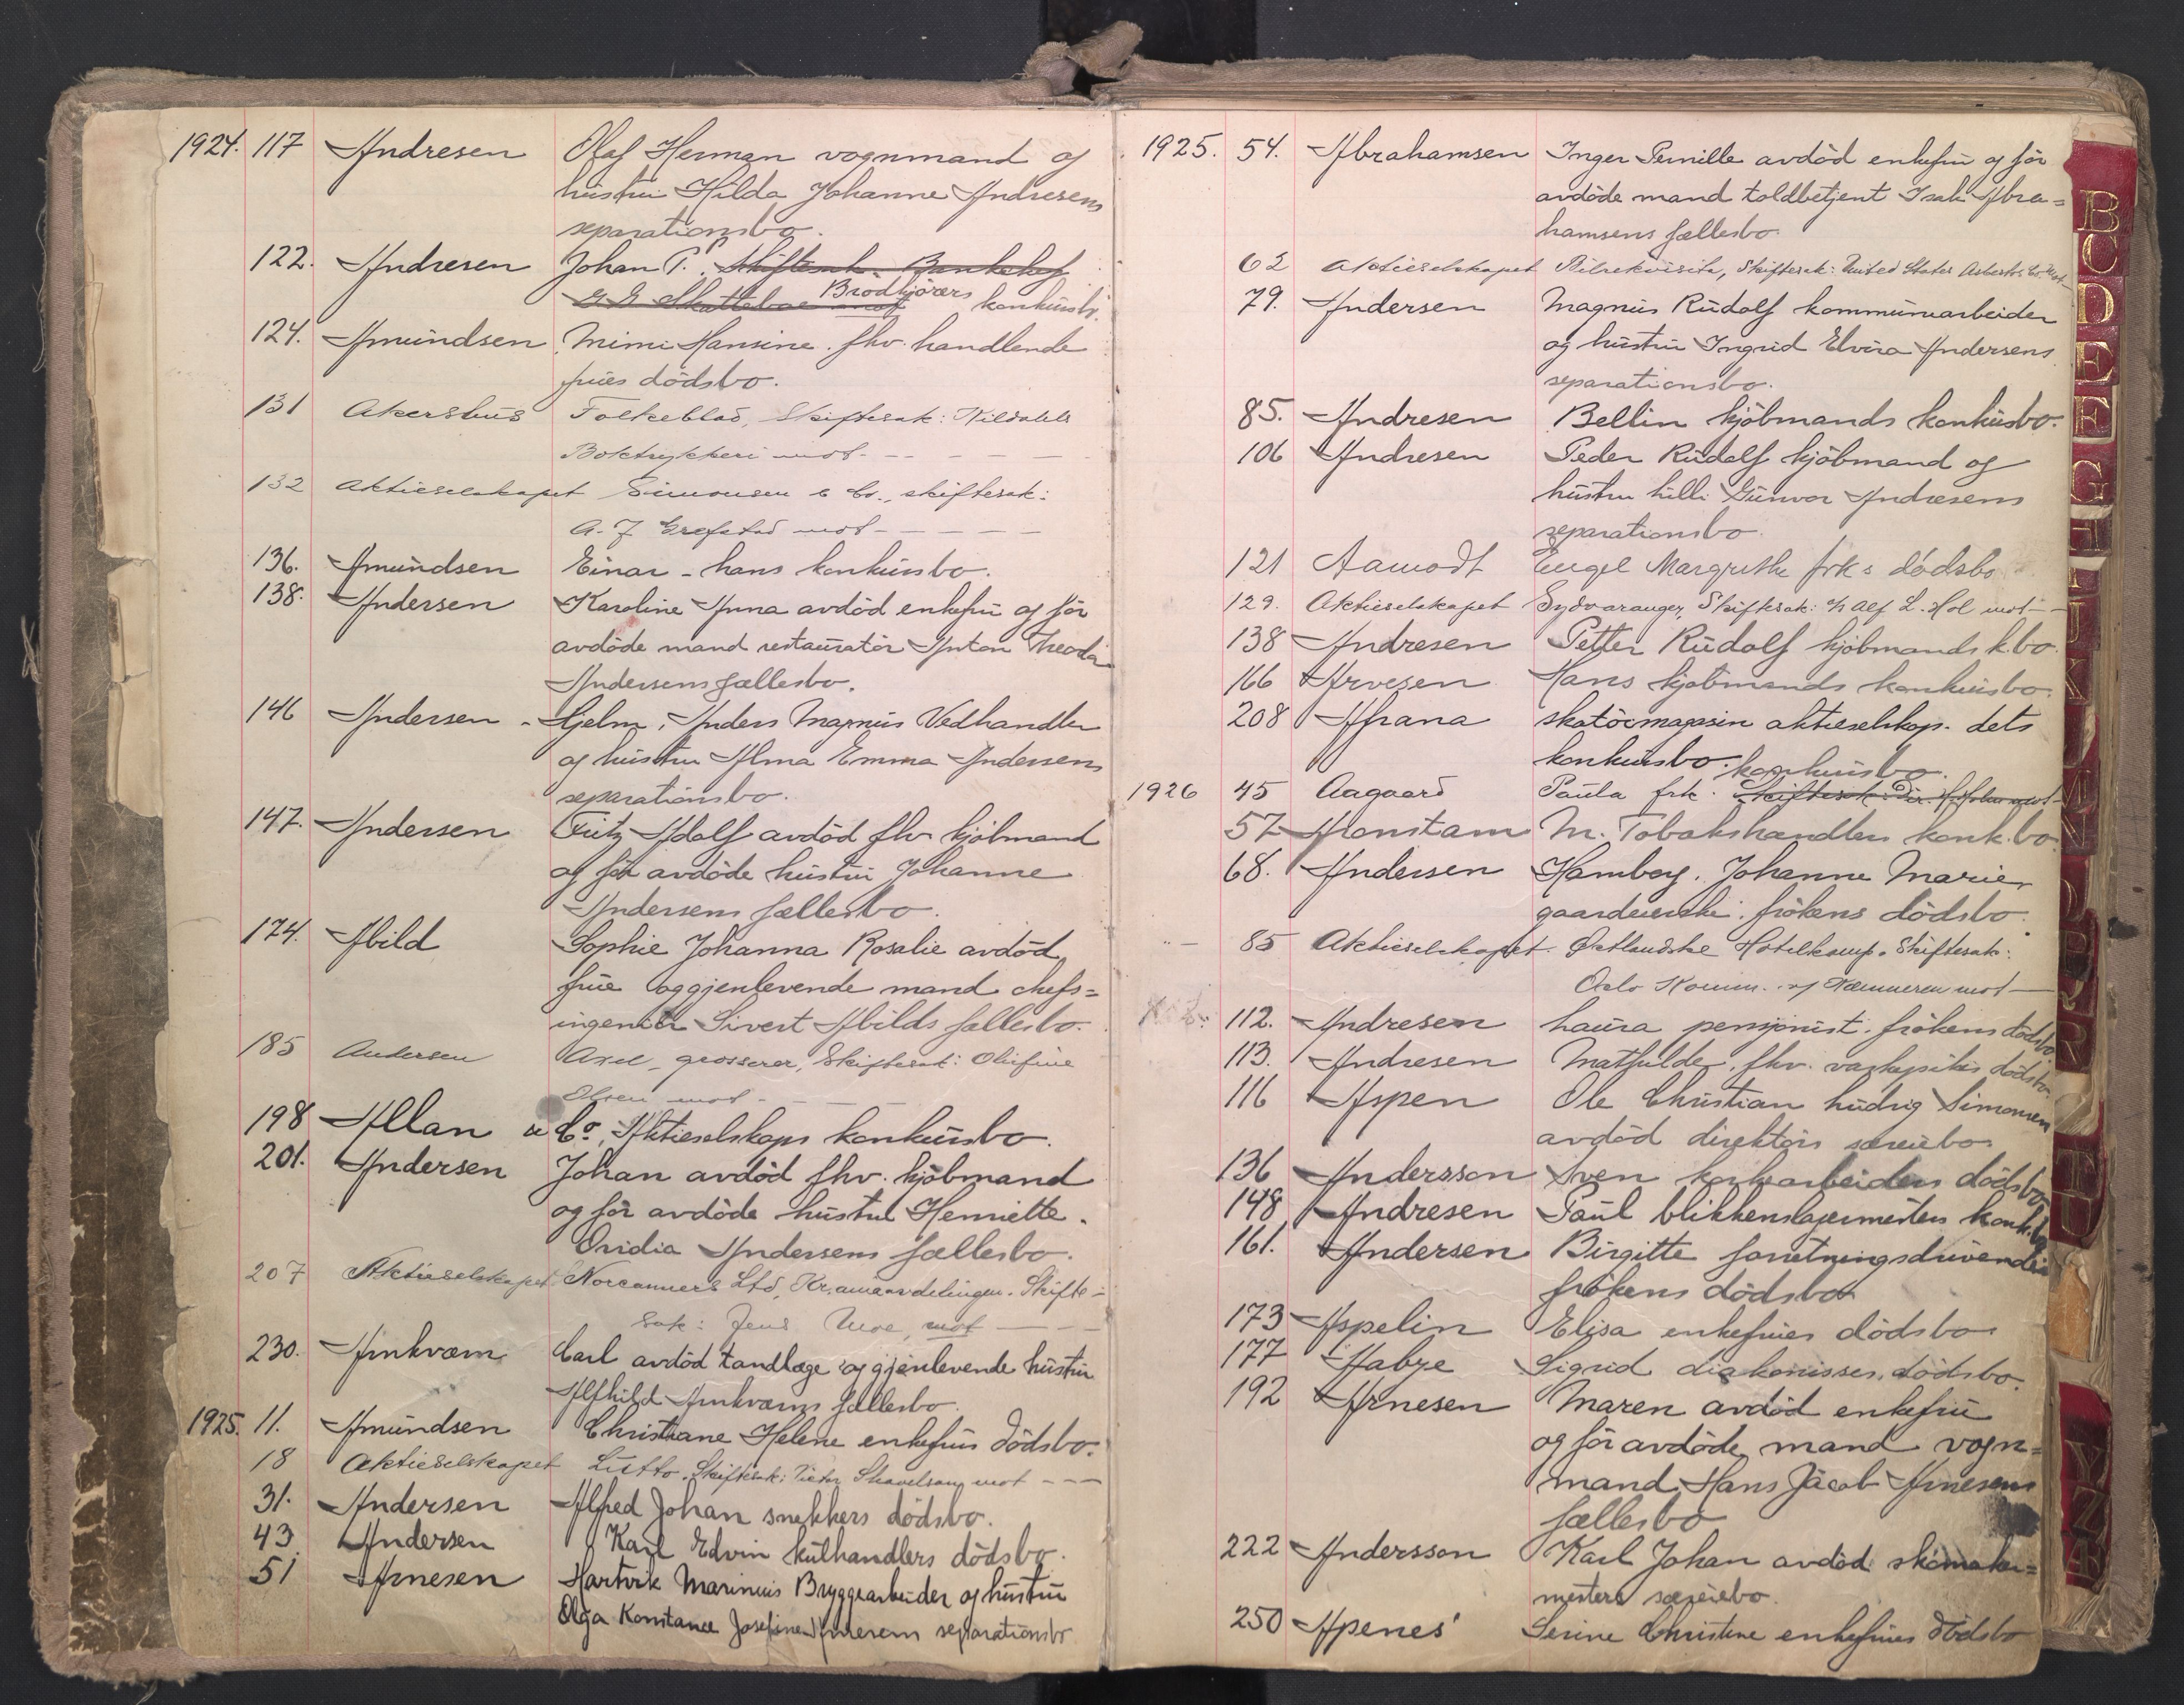 1924. 117 Andresen Olaf Herman vognmand og
hustru Hilda Johanne Andresens
separationsbo.
122. Andresen Johan P. Skiftesak.
Brødkjørers konkursbo.
124. Amundsen Mimi Hansine. fhv. handlende
frues dödsbo.
131 Akershus Folkeblad, Skiftesak: Kildahls
Boktrykkeri mot - - - -
132 Aktieselskapet Simonsen & Co., skiftesak:
A. F. Grefstad mot - - - -
136. Amundsen Einar - hans konkursbo.
138. Andersen Karoline Anna avdöd enkefru og för
avdöde mand restauratör Anton Theodor
Andersens fællesbo.
146 Andersen - Gjelm, Anders Magnus Vedhandler
og hustru Alma Emma Andersens
separationsbo.
147. Andersen Fritz Adolf avdöd fhv kjöbmand
og för avdöde hustru Johanne
Andersens fællesbo.
174. Abild Sophie Johanna Rosalie avdöd
frue og gjenlevende mand chefs=
ingeniör Sivert Abilds fællesbo.
185 Andersen Axel, grosserer, Skiftesak: Olufine
Olsen mot - - -
198 Allan & Co, Aktieselskaps konkursbo.
201. Andersen Johan avdöd fhv. kjöbmand
og för avdöde hustru Henriette
Ovidia Andersens fællesbo.
207 Aktieselskapet Norcanners Ltd, Kr.aniaavdelingen. Skifte-
sak: Jens Moe, mot - -
230. Amkværn Carl avdöd tandlæge og gjenlevende hustru
Alfhild Amkværns fællesbo.
1925. 11. Amundsen Christiane Helene enkefrus dödsbo.
18 Aktieselskapet Lutto. Skiftesak: Victor mot - - -
31. Andersen Alfred Johan snekkers dödsbo.
43. Andersen Karl Edvin kulhandlers dödsbo.
51 Arnesen Hartvik Marinius Bryggearbeider og hustru
Olga Konstance Josefine Arnesens separationsbo
1925. 54. Abrahamsen Inger Pernille avdöd enkefru og för
avdöde mand toldbetjent Isak Abra=
hamsens fællesbo.
62 Aktieselskapet Bilrekvisita, Skiftesak: United States Asbestos Co. mot
79. Andersen Magnus Rudolf kommunearbeider
og hustru Ingrid Elvira Andersens
separationsbo.
85. Andresen Bellin kjöbmands konkursbo.
106 Andresen Peder Rudolf kjöbmand og
hustru Lilli Gunvor Andresens
separationsbo.
121 Aamodt Engel Margrethe frk s dödsbo
129. Aktieselskapet Sydvaranger, Skiftesak: Alf L. Hol mot -
138 Andresen Petter Rudolf kjöbmands k.bo.
166 Arvesen Hans kjöbmands konkursbo.
208 Afrana skotöimagasin aktieselskap. dets
konkursbo.
konkursbo.
1926 45 Aagaard Paula frk. Skiftesak: Dir. mot -
57 Aronstam M. Tobakshandlers konk.bo.
68. Andersen Hamberg. Johanne Marie,
gaardeierske, frökens dödsbo.
" - 85 Aktieselskapet Østlandske Hotelkomp. Skiftesak:
Oslo Komm. v/ Kæmneren mot -
112. Andresen Laura pensjonist. frökens dödsbo.
113. Andresen Mathilde, fhv. dödsbo.
116 Aspen Ole Christian Ludvig Simonsen
avdöd direktörs særeiebo
136 Andersson Sven korkearbeiders dödsbo
148 Andresen Paul blikkenslagermesters konk.bo
161. Andersen Birgitte forretningsdrivende
frökens dödsbo
173 Aspelin Elisa enkefrues dödsbo
177 Aabye Sigrid diakonisses, dödsbo.
192 Arnesen Maren avdöd enkefru
og för avdöde mand vogn=
mand Hans Jacob Arnesens
fællesbo
222 Andersson Karl Johan avdöd skomaker=
mesters særeiebo.
250 Apenes' Serine Christine enkefrues dödsbo
B
C
D
E
F
G
H
I
Y
Z
Æ